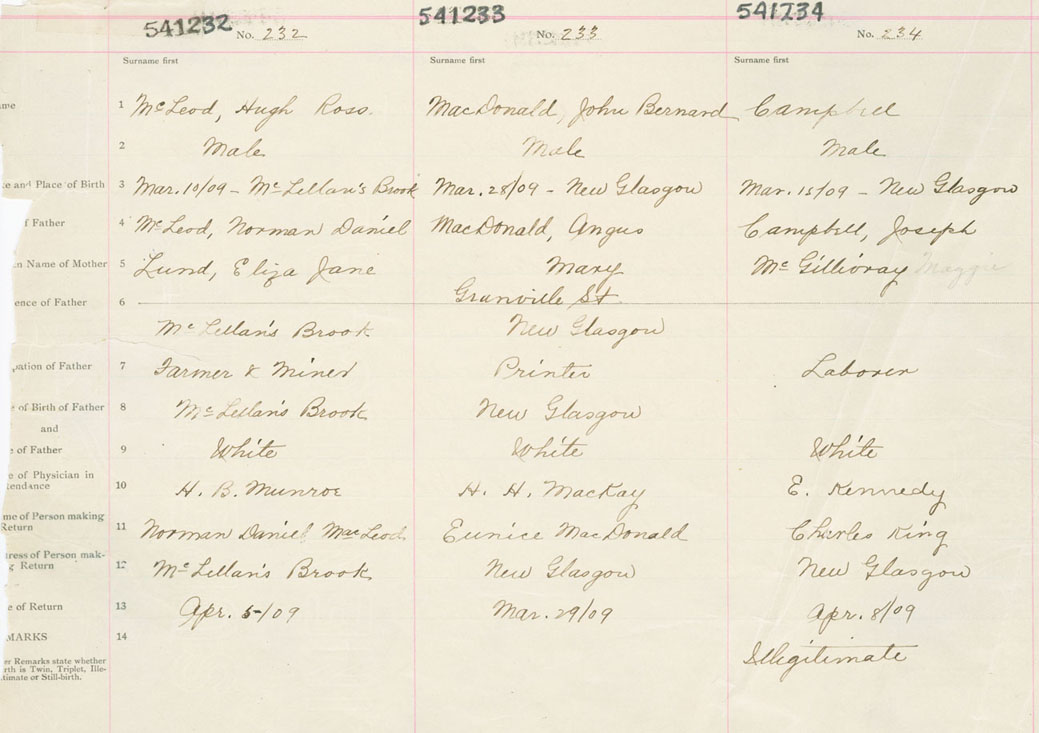 541232 541233 541234
No. 232 No. 233 No. 234
Surname first Surname first Surname first
me 1 McLeod, Hugh Ross. MacDonald, John Bernard Campbell
2 Male Male Male
te and Place of Birth 3 Mar. 10/09 - McLellan's Brook Mar. 28/09 - New Glasgow Mar. 15/09 - New Glasgow
f Father 4 McLeod, Norman Daniel MacDonald, Angus Campbell, Joseph
n Name of Mother 5 Lund, Eliza Jane Mary McGillivray Maggie
ence of Father 6 Granville St.
McLellan's Brook New Glasgow
pation of Father 7 Farmer & Miner Printer Laborer
e of Birth of Father 8 McLellan's Brook New Glasgow
and
e of Father 9 White White White
e of Physician in
tendance 10 H. B. Munroe H. H. MacKay E. Kennedy
me of Person making
Return 11 Norman Daniel MacLeod Eunice MacDonald Charles King
tress of Person mak-
g Return 12 McLellan's Brook New Glasgow New Glasgow
e of Return 13 Apr. 5-/09 Mar. 29/09 Apr. 8/09
MARKS 14
er Remarks state whether
rth is Twin, Triplet, Ille-
timate or Still-birth.
Illegitimate